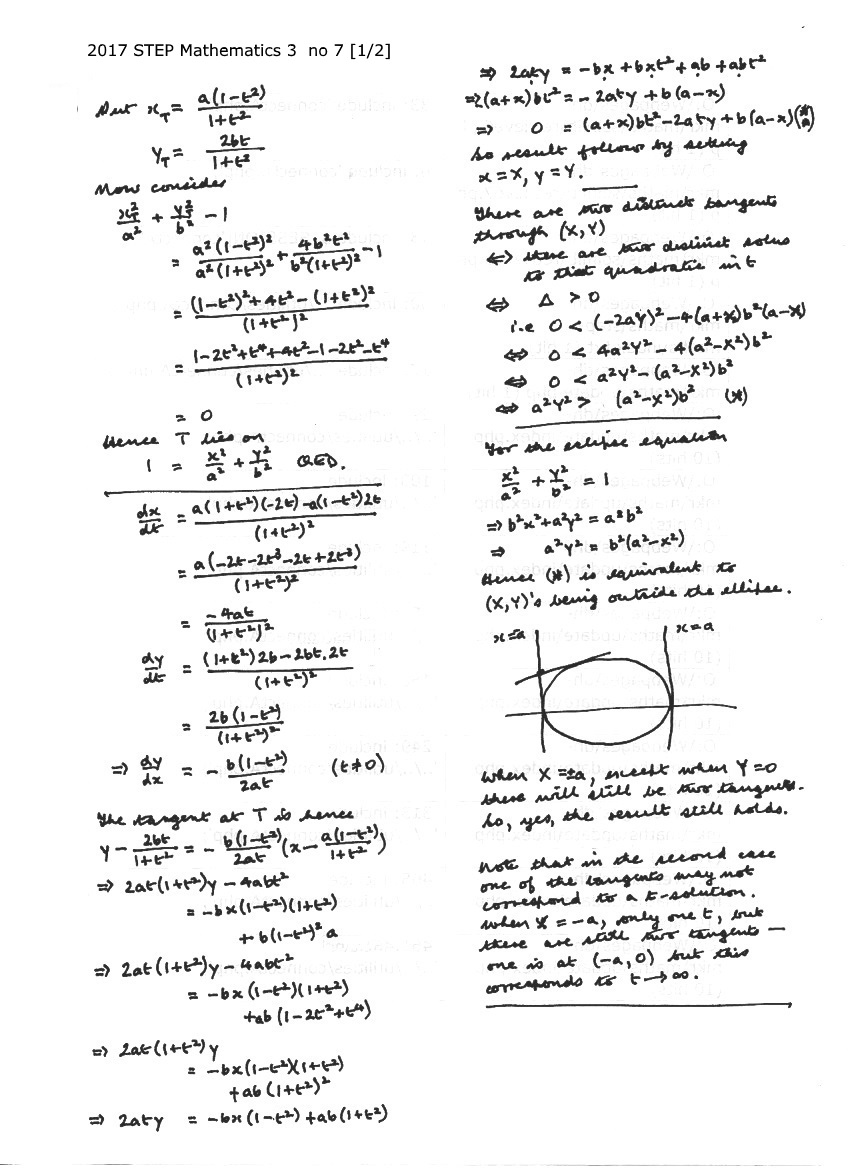 2017 STEP Mathematics 3 no 7 [1/2]
Put x_T = a(1-t²)/(1+t²)
Y_T = 2bt/(1+t²)
Now consider
x_T²/a² + y_T²/b² - 1
= a²(1-t²)²/(a²(1+t²)²) + 4b²t²/(b²(1+t²)²) - 1
= ((1-t²)² + 4t² - (1+t²)²)/(1+t²)²
= (1-2t²+t⁴+4t²-1-2t²-t⁴)/(1+t²)²
= 0
Hence T lies on
1 = x²/a² + y²/b² QED.
dx/dt = (a(1+t²)(-2t) - a(1-t²)2t)/(1+t²)²
= a(-2t-2t³-2t+2t³)/(1+t²)²
= -4at/(1+t²)²
dy/dt = ((1+t²)2b - 2bt.2t)/(1+t²)²
= 2b(1-t²)/(1+t²)²
⇒ dy/dx = - b(1-t²)/2at (t≠0)
The tangent at T is hence
y - 2bt/(1+t²) = - b(1-t²)/2at (x - a(1-t²)/(1+t²))
⇒ 2at(1+t²)y - 4abt²
= -bx(1-t²)(1+t²)
+ b(1-t²)² a
⇒ 2at(1+t²)y - 4abt²
= -bx(1-t²)(1+t²)
+ab(1-2t²+t⁴)
⇒ 2at(1+t²)y
= -bx(1-t²)(1+t²)
+ab(1+t²)²
⇒ 2aty = -bx(1-t²)+ab(1+t²)
⇒ 2aty = -bx + bxt² + ab + abt²
⇒ (a+x)bt² = - 2aty + b(a-x)
⇒ 0 = (a+x)bt² - 2aty + b(a-x)
So result follows by setting
x = X, y = Y.
There are two distinct tangents
through (X,Y)
⇔ there are two distinct solns
to that quadratic in t
⇔ Δ > 0
i.e 0 < (-2aY)² - 4(a+X)b²(a-X)
⇔ 0 < 4a²Y² - 4(a²-X²)b²
⇔ 0 < a²Y² - (a²-X²)b²
⇔ a²Y² > (a²-X²)b² (*)
For the ellipse equation
x²/a² + y²/b² = 1
⇒ b²x²+a²y² = a²b²
⇒ a²y² = b²(a²-x²)
Hence (*) is equivalent to
(X,Y)'s being outside the ellipse.
x=-a x=a
When X = ±a, except when Y=0
there will still be two tangents.
So, yes, the result still holds.
Note that in the second case
one of the tangents may not
correspond to a t-solution.
When X = -a, only one t, but
there are still two tangents —
one is at (-a, 0) but this
corresponds to t → ∞.